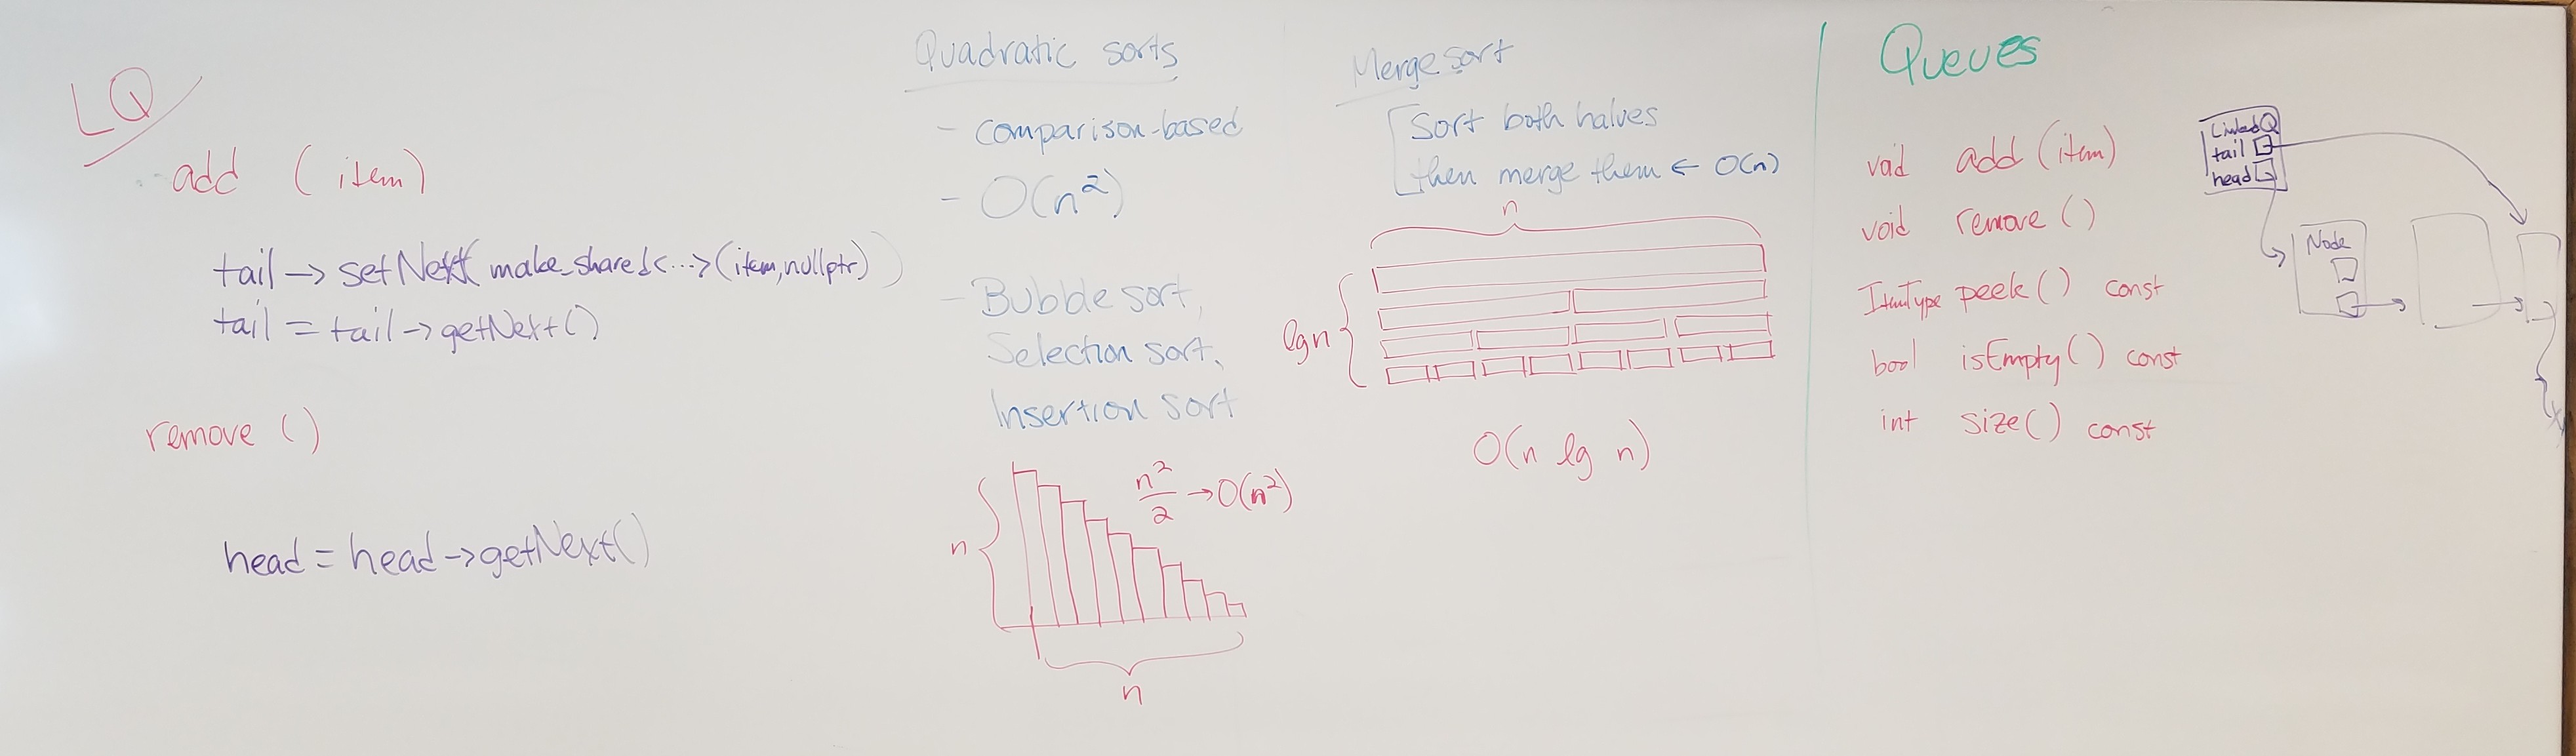 LQ
add (item)
tail → setNext(make_shared<...>(item,nullptr))
tail = tail → getNext()
remove ()
head = head → getNext()
Quadratic sorts
- comparison-based
- O(n²)
- Bubble sort,
Selection sort,
Insertion sort
n²/2 → O(n²)
n
n
Merge sort
Sort both halves
then merge them ← O(n)
n
lg n
O(n lg n)
Queues
void add (item)
void remove ()
ItemType peek () const
bool isEmpty () const
int size () const
LinkedQ
tail
head
Node